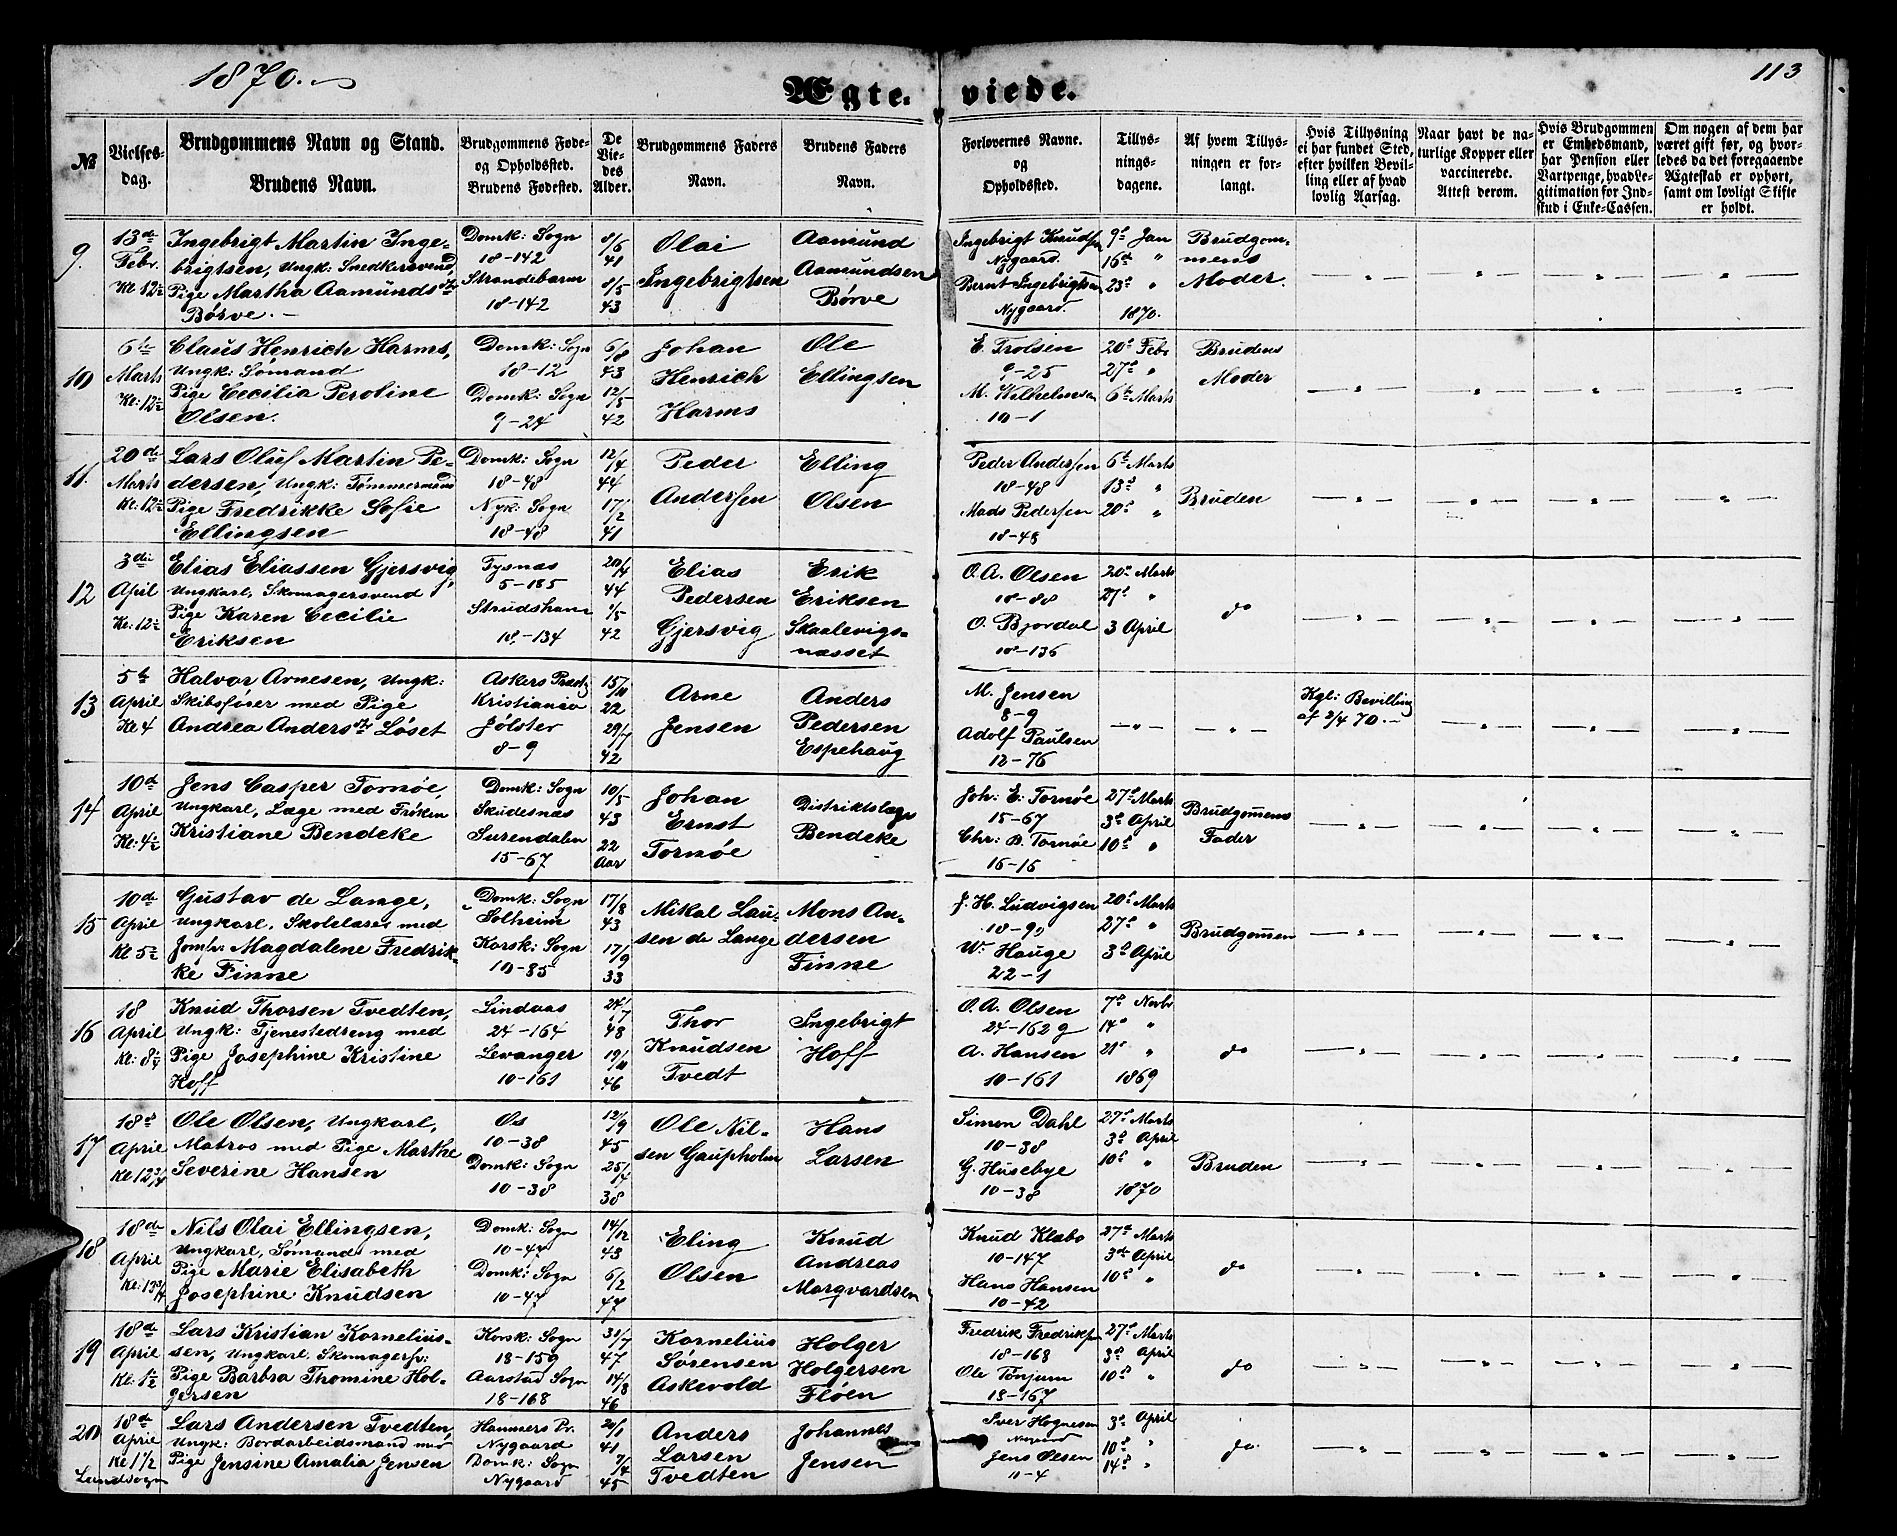 1870.
Ægte-
viede.
113
№
Vielses-
dag.
Brudgommens Navn og Stand.
Brudens Navn.
Brudgommens Føde-
og Opholdssted.
Brudens Fødested.
De
Vie-
des
Alder.
Brudgommens Faders
Navn.
Brudens Faders
Navn.
Forlovernes Navne.
og
Opholdssted.
Tillys-
nings-
dagene.
Af hvem Tillys-
ningen er for-
langt.
Hvis Tillysning
ei har fundet Sted,
efter hvilken Bevil-
ling eller af hvad
lovlig Aarsag.
Naar havt de na-
turlige Kopper eller
vaccinerede.
Attest derom.
Hvis Brudgommen
er Embedsmand,
har Pension eller
Vartpenge, hvad Le-
gitimation for Ind-
skud i Enke-Cassen.
Om nogen af dem har
været gift før, og hvor-
ledes da det foregaaende
Ægteskab er ophørt,
samt om lovligt Skifte
er holdt.
9.
13de
Febr.
Kl 12½
Ingebrigt Martin Inge-
brigtsen, Ungk: Snedkersvend,
Pige Martha Aamundsdtr
Børve. –
Domk: Sogn
18-142
Strandebarm
18-142
8/6
41
8/5
43
Olai
Ingebrigtsen
Aamund
Aamundsen
Børve
Ingebrigt Knudsen
Nygaard
Bernt Ingebrigtsen
Nygaard.
9d Jan
16d "
23d "
1870.
Brudgom-
mens
Moder.
10
6te
Marts
Kl: 12½
Claus Henrich Harms,
Ungk: Sømand
Pige Cecilia Peroline
Olsen.
Domk: Sogn
18-12
Domk: Sogn
9-24
6/8
43
12/5
42
Johan
Henrich
Harms
Ole
Ellingsen
E. Trolsen
9-25
M. Wilhelmsen
10-1
20d Febr
27d "
6te Marts
Brudens
Moder
11.
20de
Marts
Kl: 12½
Lars Oluf Martin Pe-
dersen, Ungk: Tømmermand
Pige Fredrikke Sofie
Ellingsen
Domk: Sogn
18-48
Nyk: Sogn
18-48
12/4
44
17/2
41
Peder
Andersen
Elling
Olsen
Peder Andersen
18-48
Mads Pedersen
18-48
6te Marts
13d "
20d "
Bruden
12
3die
April
Kl: 12½
Elias Eliassen Gjersvig,
Ungkarl, Skomagersvend
Pige Karen Cecilie
Eriksen
Tysnæs
5-185
Strudshavn
18-134
20/4
44
1/5
42
Elias
Pedersen
Gjersvig
Erik
Eriksen
Skaalevigs-
næsset
O. A. Olsen
18-88
O. Bjordal
18-136
20d Marts
27d "
3 April
do
13
5te
April
Kl 4
Halvor Arnesen, Ungk:
Skibsfører med Pige
Andrea Andersdtr Løset
Askers Præstg
Kristiansa
Jølster
8-9
15/10
22
29/7
42
Arne
Jensen
Anders
Pedersen
Espehaug
M. Jensen
8-9
Adolf Paulsen
12-76
Kgl: Bevilling
af 2/4 70. –
14
10de
April
Kl: 4½
Jens Casper Tornøe,
Ungkarl, Læge med Frøken
Kristiane Bendeke
Domk: Sogn
Skudesnæs
Surendalen
15-67
10/5
43
22
Aar
Johan
Ernst
Tornøe
Distriktslæge
Bendeke
Joh: E: Tornøe
15-67
Chr: B. Tornøe
16-16
27d Marts
3d April
10d "
Brudgommens
Fader
15
10de
April
Kl 5½
Gustav de Lange,
Ungkarl, Skolelærer med
Jomfr: Magdalene Fredrik-
ke Finne
Domk: Sogn
Solheim
Korsk: Sogn
10-85
17/8
43
17/9
33
Mikal Lau-
sen de Lange
Mons An-
dersen
Finne
J. H. Ludvigsen
18-90
W. Hauge
22-1
20d Marts
27d "
3d April
Brudgommen
16
18
April
Kl: 8¼
Knud Thorsen Tvedten,
Ungk: Tjenestedreng med
Pige Josephine Kristine
Hoff
Lindaas
24-164
Levanger
10-161
24/7
48
19/10
46
Thor
Knudsen
Tvedt
Ingebrigt
Hoff
O. A. Olsen
24-162 g
A. Hansen
10-161
7d Novbr
14d "
21d "
1869
do
17
18d
April
Kl 12¾
Ole Olsen, Ungkarl,
Matros med Pige Marthe
Severine Hansen
Os
10-38
Domk: Sogn
10-38
12/9
45
25/4
38
Ole Nil-
sen Gaupholm
Hans
Larsen
Simon Dahl
10-38
G. Husebye
10-38
27d Marts
3d April
10d "
1870
Bruden
18
18de
April
Nils Olai Ellingsen,
Ungkarl, Sømand med
Pige Marie Elisabeth
Josephine Knudsen
Domk: Sogn
10-47
Domk: Sogn
10-47
14/12
43
6/2
47
Eling
Olsen
Knud
Andreas
Marqvardsen
Knud Klæbo
10-147
Hans Hansen
10-42
27d Marts
3de April
10d "
do
19
18de
April
Kl: 1½
Lars Kristian Kornelius-
sen, Ungkarl, Skomagersv:
Pige Barbra Thomine Hol-
gersen
Korsk: Sogn
18-159
Aarstad Sogn
18-168
31/7
47
14/8
46
Kornelius
Sørensen
Askevold
Holger
Holgersen
Fløen
Fredrik Fredriksen
18-168
Ole Tønjum
18-167
27d Marts
3d April
10d "
do
20
18de
April
Kl 1½
Landsogn
Lars Andersen Tvedten,
Ungk: Bordarbeidsmand med
Pige Jensine Amalia Jensen
Hammers Pr.
Nygaard
Domk: Sogn
Nygaard
20/1
41
7/4
45
Anders
Larsen
Tvedten
Johannes
Jensen
Iver Hognesen
Nygaard
Jens Olsen
11-4
3d April
10d "
14d "
do